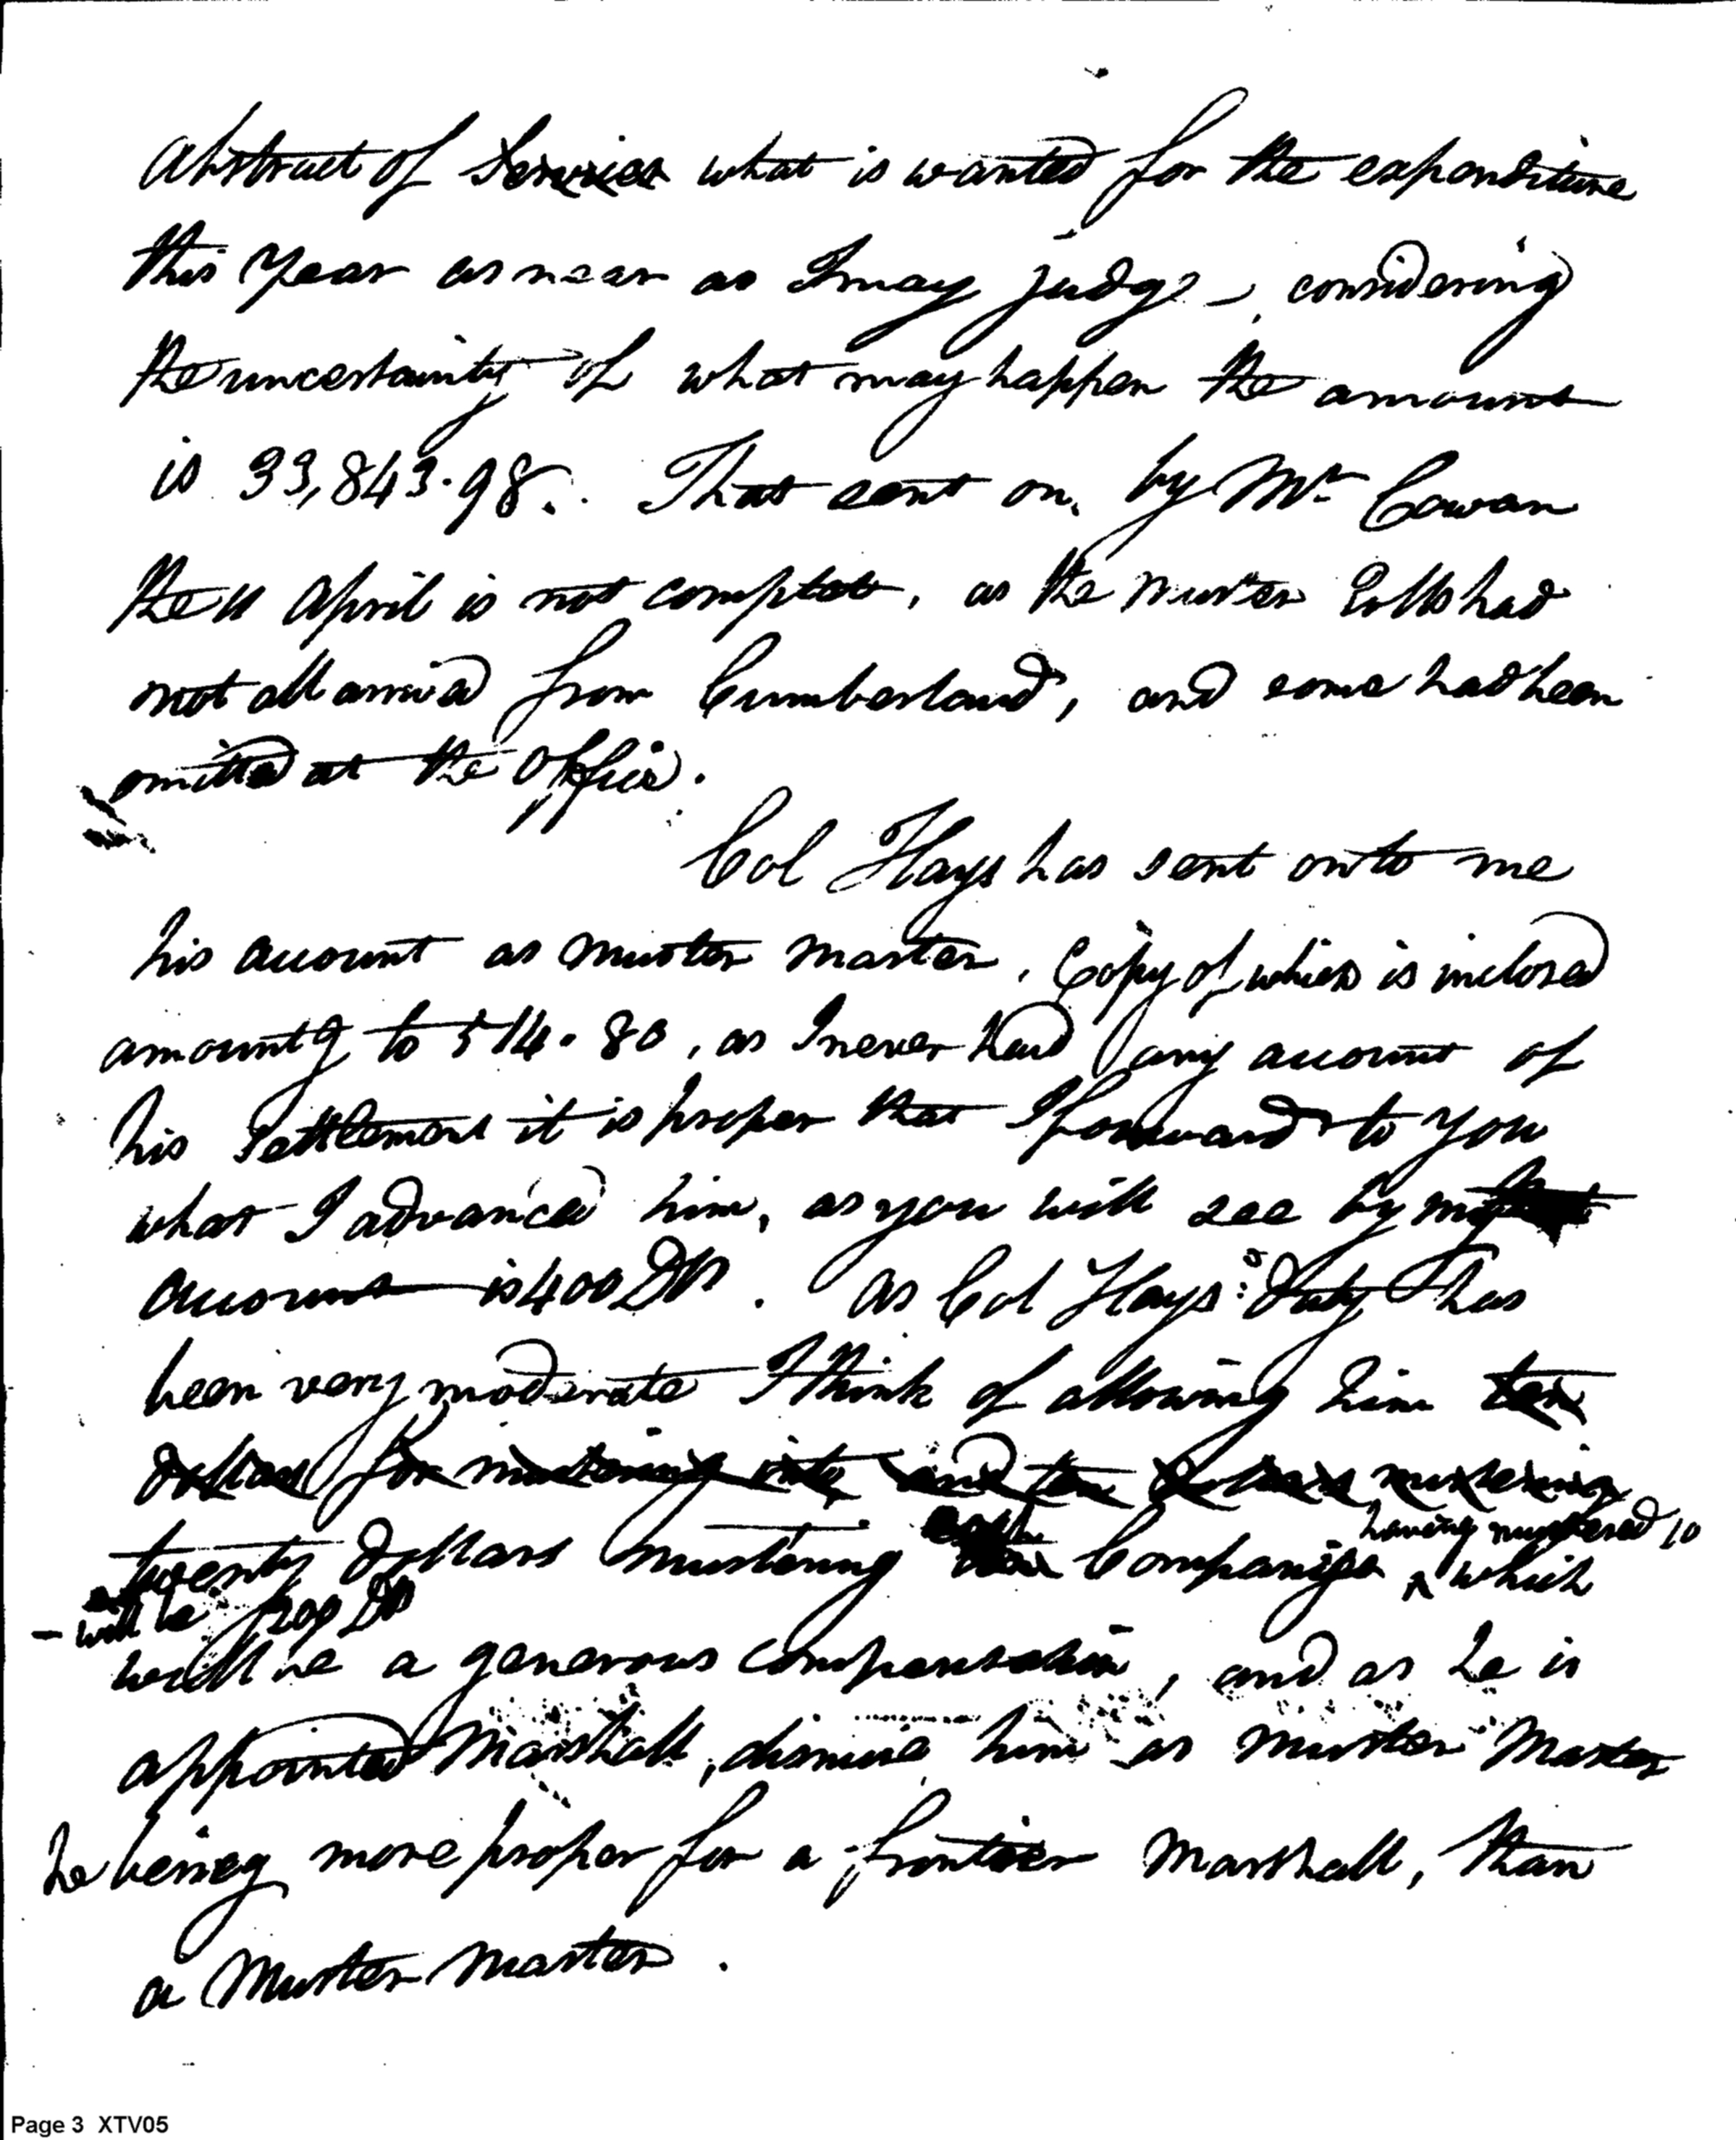 Abstract of Services what is wanted for the expenditure
this Year as near as I may judge -, considering
the uncertainty of what may happen the amount
is 33,843.98. That sent on by Mr Cowan
the 11 April is not complete, as the muster Rolls had
not all arrived from Cumberland, and some had been
omitted at the Office.
Col Hays has sent onto me
his account as muster master, Copy of which is inclosed
amountg to 514.80, as I never had any account of
his Settlement it is proper that I forward to you
what I advanced him, as you will see by my
account is 400 Drs. As Col Hays's duty has
been very moderate I think of allowing him ten
dollars for mustering into and ten dollars mustering
having mustered 10
twenty dollars mustering each Companies ^ which
- will be 200 Drs
will be a generous compensation, and as he is
appointed Marshall, dismiss him as muster Master
he being more proper for a frontier Marshall, than
a Muster Master.
Page 3 XTV05